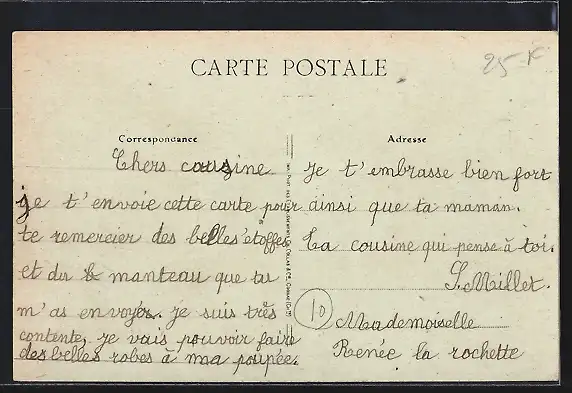 25 K
CARTE POSTALE
Correspondance
Chers cousine
je t'envoie cette carte pour
te remercier des belles etoffes
et du manteau que tu
m'as envoyés. je suis très
contente, je vais pouvoir faire
des belles robes à ma poupée.
Adresse
Je t'embrasse bien fort
ainsi que ta maman.
Ta cousine qui pense à toi.
S. Millet.
10
Mademoiselle
Renée la rochette